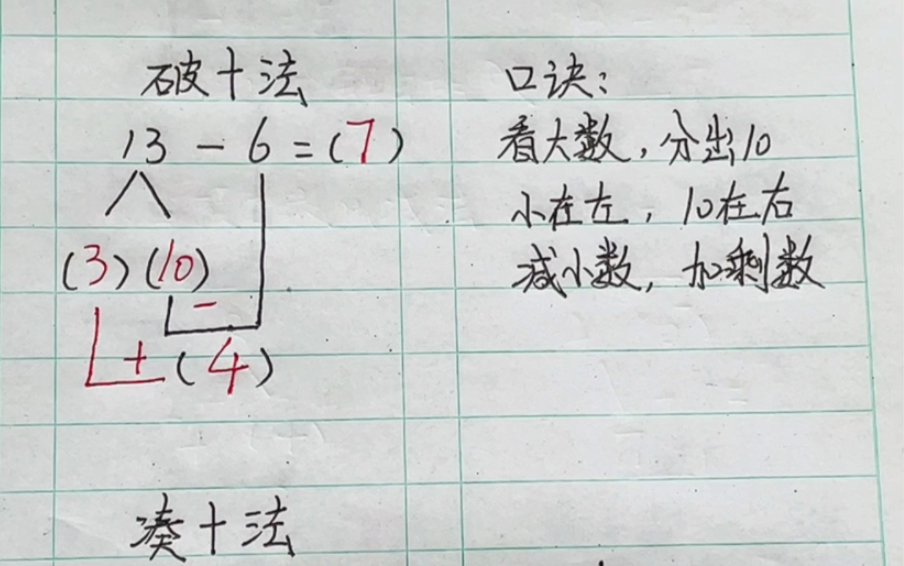 破十法
13 - 6 = (7)
(3) (10)
-
+ (4)
口诀：
看大数，分出10
小在左，10在右
减小数，加剩数
凑十法